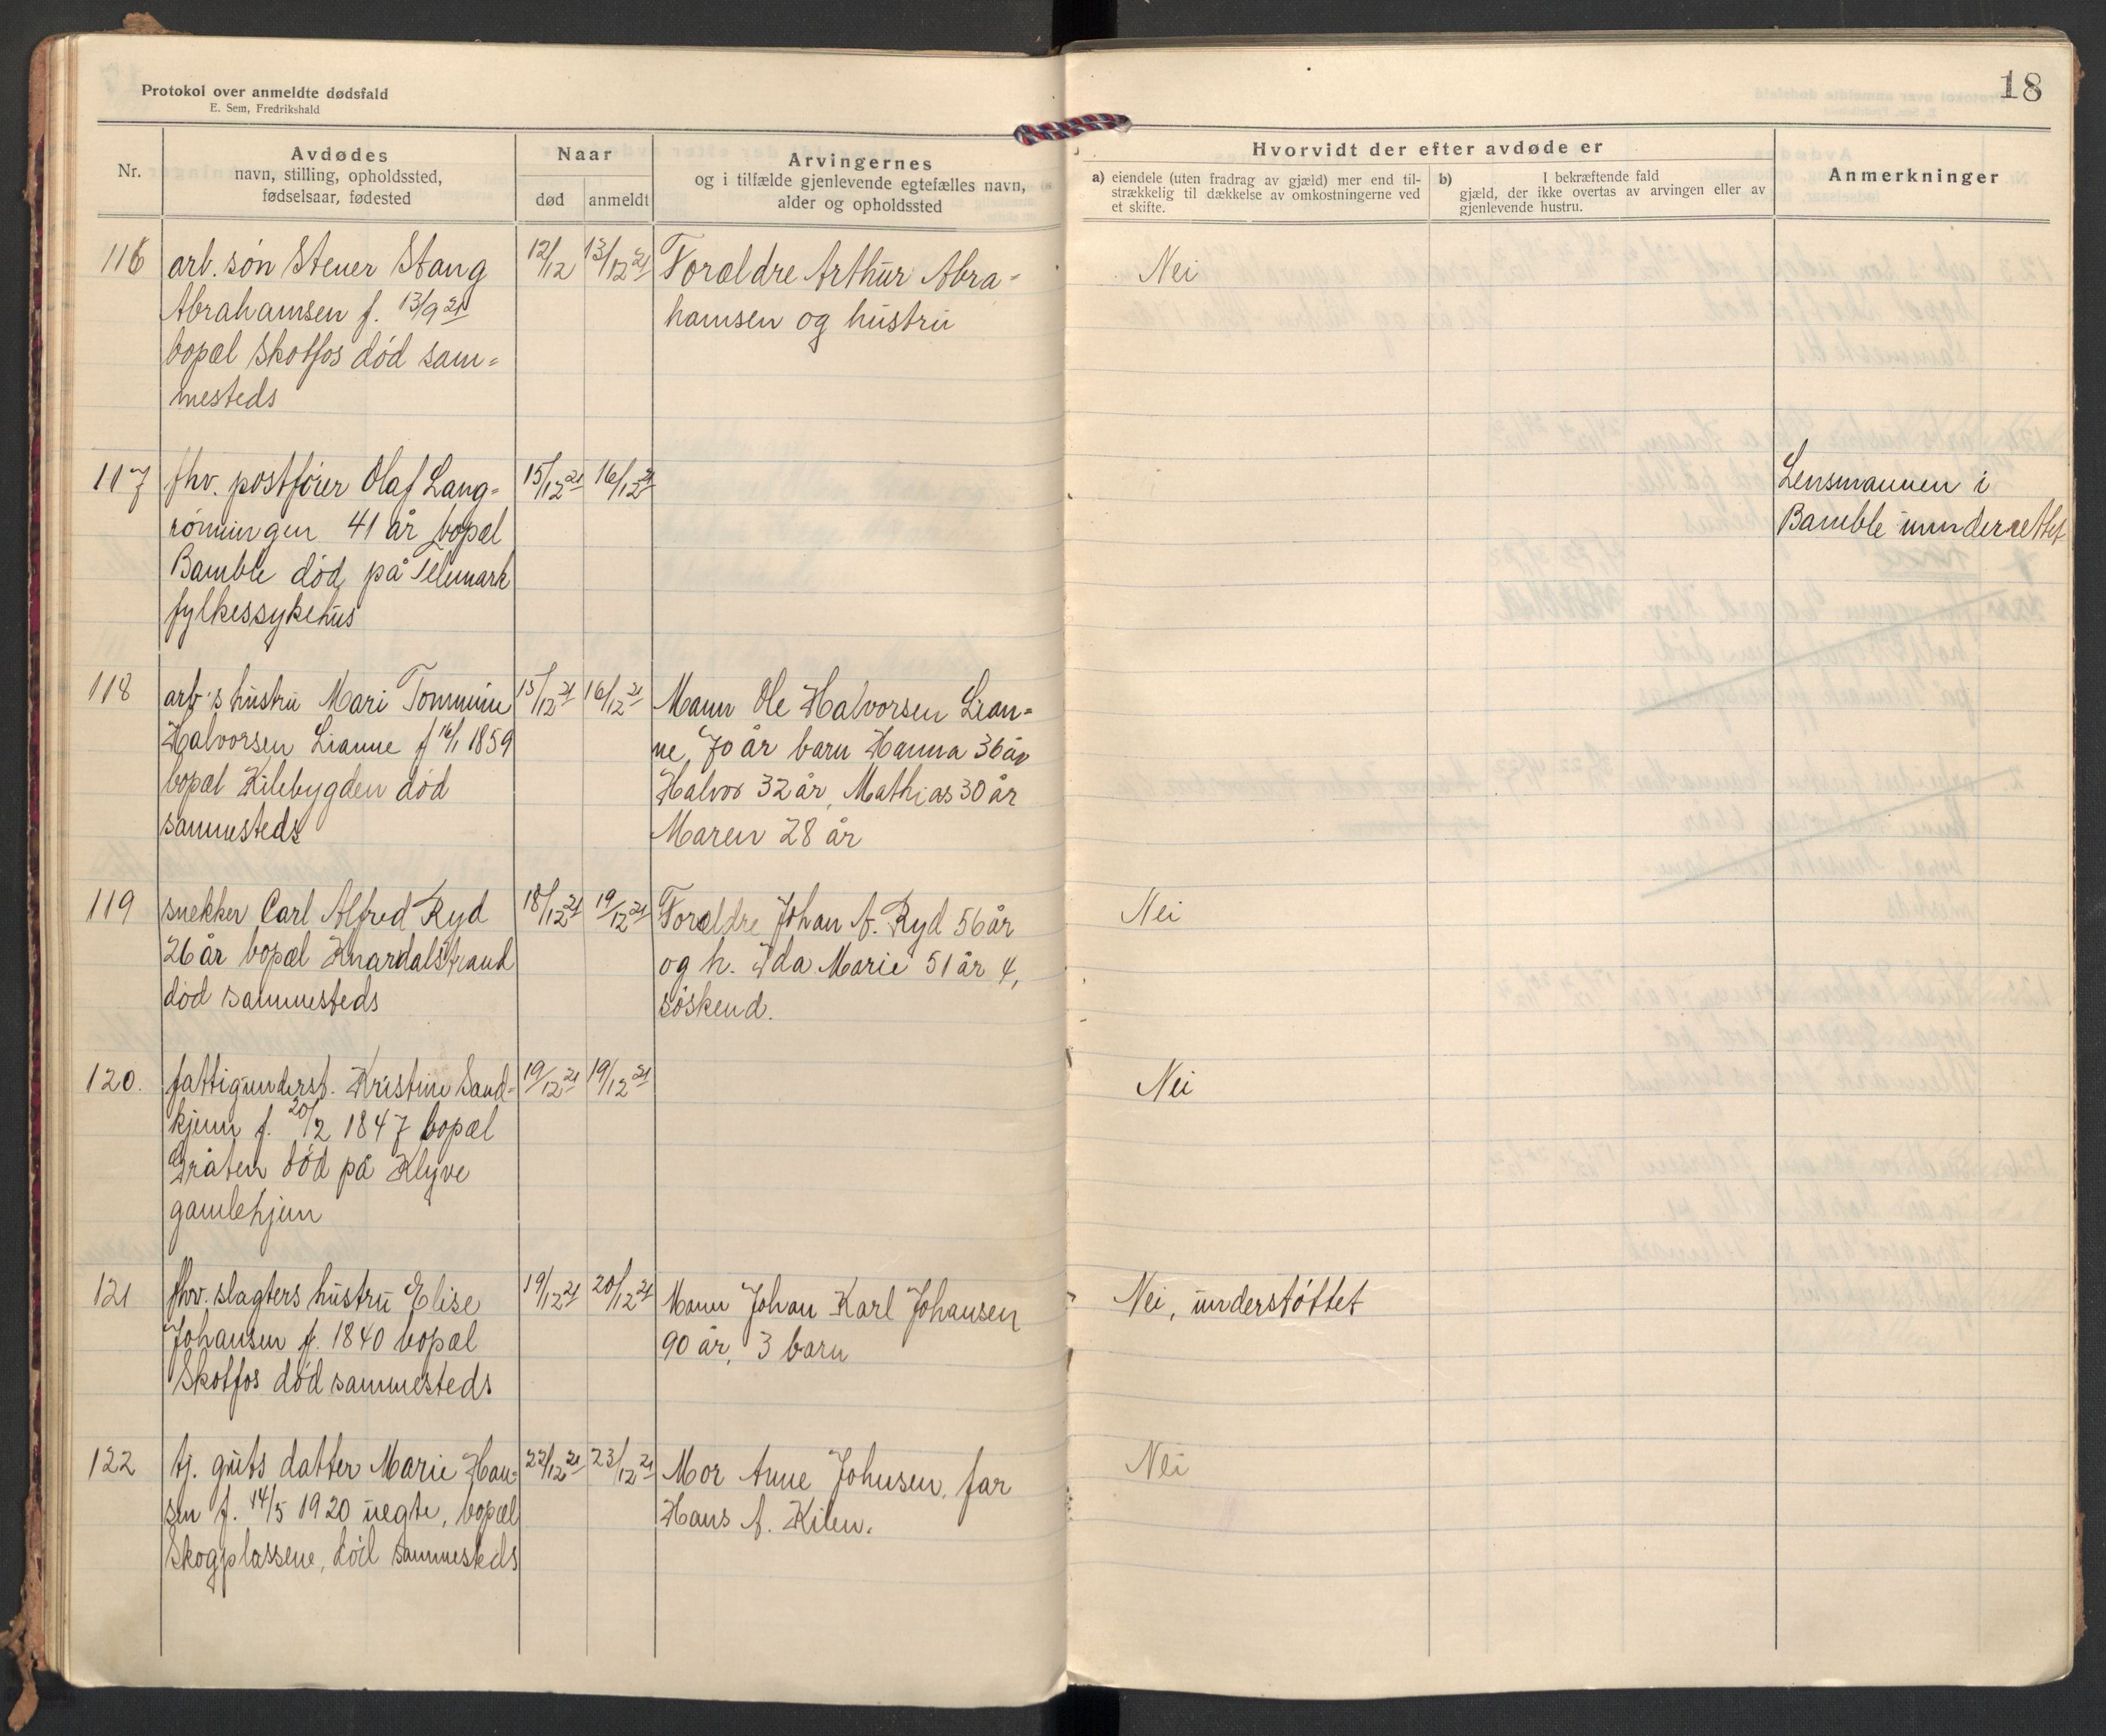 Protokol over anmeldte dødsfald
E. Sem, Fredrikshald
18
Nr.
Avdødes
navn, stilling, opholdssted,
fødselsaar, fødested
Naar
død
anmeldt
Arvingernes
og i tilfælde gjenlevende egtefælles navn,
alder og opholdssted
Hvorvidt der efter avdøde er
a) eiendele (uten fradrag av gjæld) mer end til-
strækkelig til dækkelse av omkostningerne ved
et skifte.
b) I bekræftende fald
gjæld, der ikke overtas av arvingen eller av
gjenlevende hustru.
Anmerkninger
116
arb. søn Stener Stang
Abrahamsen f. 13/9 21
bopæl Skotfos død sam=
mesteds
12/12
13/12 21
Forældre Arthur Abra=
hamsen og hustru
Nei
117
fhv. postfører Olaf Lang=
rønningen 41 år bopæl
Bamble død på Telemark
fylkessykehus
15/12 21
16/12 21
Lensmannen i
Bamble underrettet
118
arb's hustru Mari Tommine
Halvorsen Lianne f 16/1 1859
bopæl Kilebygden død
sammesteds
15/12 21
16/12 21
Mann Ole Halvorsen Lian=
ne 70 år barn Hanna 36 år
Halvor 32 år, Mathias 30 år
Maren 28 år
119
snekker Carl Alfred Ryd
26 år bopæl Knardalstrand
død sammesteds
18/12 21
19/12 21
Forældre Johan A. Ryd 56 år
og h. Ida Marie 51 år 4,
søskend.
Nei
120.
fattigunderst. Kristine Sand=
kjenn f. 20/12 1847 bopæl
Gråten død på Klyve
gamlehjem
19/12 21
19/12 21
Nei
121
fhv. slagters hustru Elise
Johansen f. 1840 bopæl
Skotfos død sammesteds
19/12 21
20/12 21
Mann Johan Karl Johansen
90 år, 3 barn
Nei, understøttet
122
tj. guts datter Marie Han=
sen f. 14/5 1920 uegte, bopæl
Skogplassene, død sammesteds
22/12 21
23/12 21
Mor Anne Johnsen, far
Hans A. Kilen.
Nei